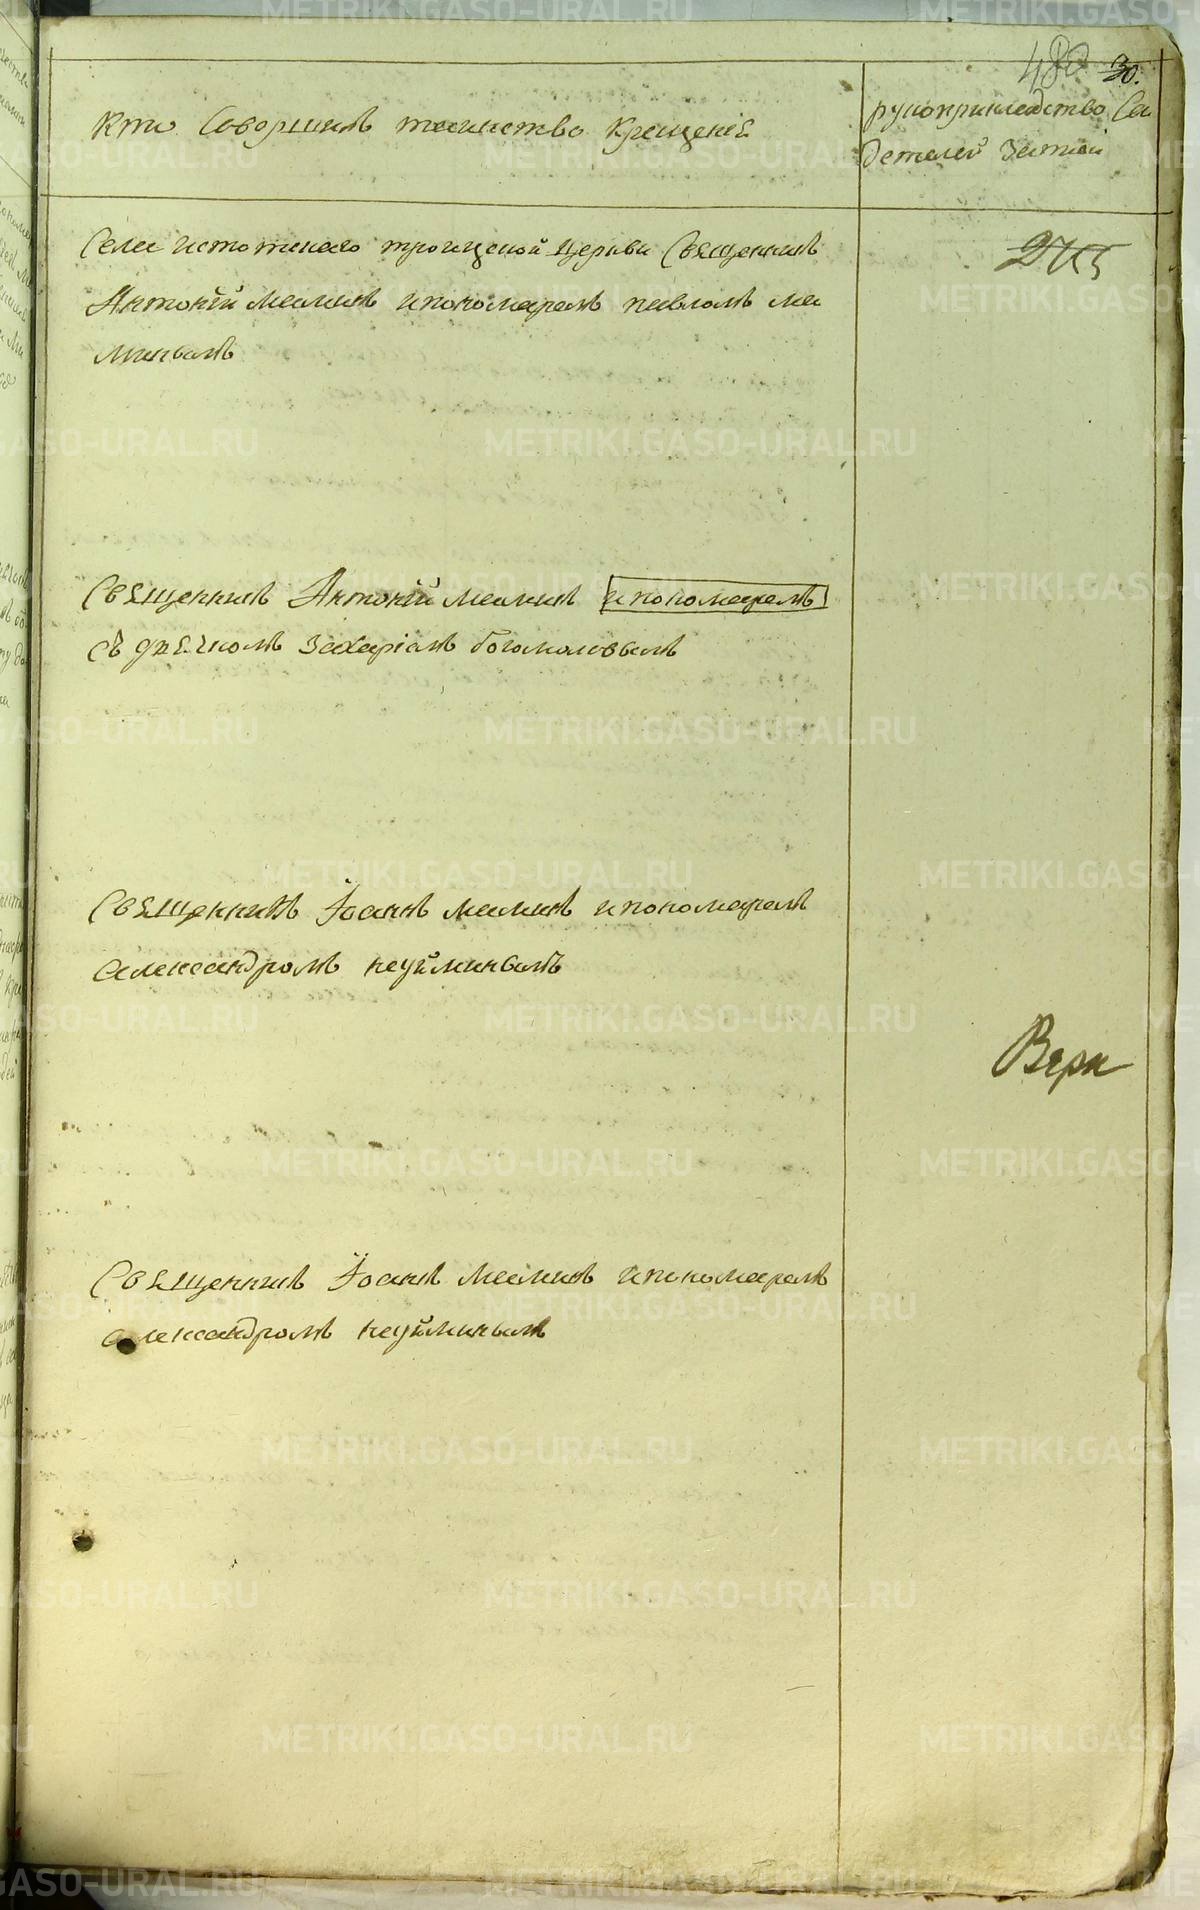 30.
Кто Совершилъ таинство Крещенїя
рукоприкладство Сви
детелей Записи
Села истокинского троицкой Церкви Священникъ
Антонїй Маминъ ипономаремъ павломъ ма
минымъ
Священникъ Антонїй Маминъ ипономаремъ
съ дьячкомъ Захарїамъ богомоловымъ
Священникъ Їоаннъ Маминъ ипономаремъ
александромъ неуйминымъ
Верн
Священникъ Їоаннъ Маминъ ипономаремъ
александромъ неуйминымъ
METRIKI.GASO-URAL.RU